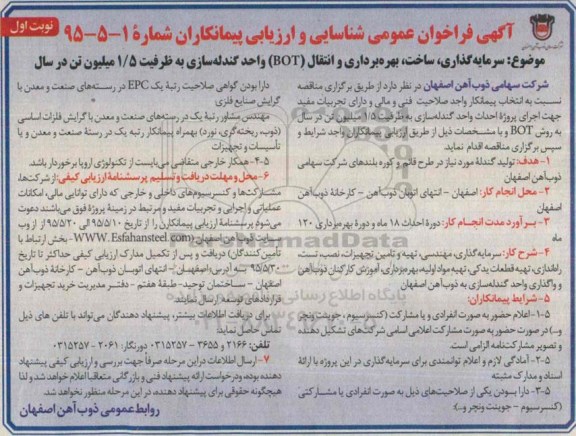 نوبت اول
آگهی فراخوان عمومی شناسایی و ارزیابی پیمانکاران شمارۀ ۱-۵-۹۵
موضوع: سرمایه‌گذاری، ساخت، بهره‌برداری و انتقال (BOT) واحد گندله‌سازی به ظرفیت ۱/۵ میلیون تن در سال
شرکت سهامی ذوب‌آهن اصفهان در نظر دارد از طریق برگزاری مناقصه
نسبت به انتخاب پیمانکار واجد صلاحیت فنی و مالی و دارای تجربیات مفید
جهت اجرای پروژۀ احداث واحد گندله‌سازی به ظرفیت ۱/۵ میلیون تن در سال
به روش BOT و با مشخصات ذیل از طریق ارزیابی پیمانکاران واجد شرایط و
سپس برگزاری مناقصه اقدام نماید.
۱- هدف: تولید گندلۀ مورد نیاز در طرح قائم و کوره بلندهای شرکت سهامی
ذوب‌آهن اصفهان
۲- محل انجام کار: اصفهان - انتهای اتوبان ذوب‌آهن - کارخانۀ ذوب‌آهن
اصفهان
۳- برآورد مدت انجام کار: دورۀ احداث ۱۸ ماه و دورۀ بهره‌برداری ۱۲۰
ماه
۴- شرح کار: سرمایه‌گذاری، مهندسی، تهیه و تأمین تجهیزات، نصب، تست،
راه‌اندازی، تهیه قطعات یدکی، تهیه مواد اولیه، بهره‌برداری، آموزش کارکنان ذوب‌آهن
و واگذاری واحد گندله‌سازی به ذوب‌آهن اصفهان
۵- شرایط پیمانکاران:
۱-۵- اعلام حضور به صورت انفرادی و یا مشارکت (کنسرسیوم، جوینت ونچر
و...) در صورت حضور به صورت مشارکت اعلامی اسامی شرکت‌های تشکیل دهنده
و تصویر مشارکت‌نامه الزامی است.
۲-۵- آمادگی لازم و اعلام توانمندی برای سرمایه‌گذاری در این پروژه با ارائۀ
اسناد و مدارک مثبته
۳-۵- دارا بودن یکی از صلاحیت‌های ذیل به صورت انفرادی یا مشارکتی
(کنسرسیوم - جوینت ونچر و...):
دارا بودن گواهی صلاحیت رتبۀ یک EPC در رسته‌های صنعت و معدن با
گرایش صنایع فلزی
مهندس مشاور رتبۀ یک در رسته‌های صنعت و معدن با گرایش فلزات اساسی
(ذوب، ریخته‌گری، نورد) بهمراه پیمانکار رتبه یک در رستۀ صنعت و معدن و یا
تأسیسات و تجهیزات
۴-۵- همکار خارجی متقاضی می‌بایست از تکنولوژی اروپا برخوردار باشد.
۶- محل و مهلت دریافت و تسلیم پرسشنامۀ ارزیابی کیفی: از شرکت‌ها،
مشارکت‌ها و کنسرسیوم‌های داخلی و خارجی که دارای توانایی مالی، امکانات
عملیاتی و اجرایی و تجربیات مفید و مرتبط در زمینۀ پروژۀ فوق می‌باشند دعوت
می‌شود پرسشنامۀ ارزیابی پیمانکاران را از تاریخ ۹۵/۵/۱۰ الی ۹۵/۵/۲۰ از وب
سایت ذوب‌آهن اصفهان (WWW.Esfahansteel.com- بخش ارتباط با
تأمین‌کنندگان) دریافت و پس از تکمیل مدارک ارزیابی کیفی حداکثر تا تاریخ
۹۵/۵/۳۰ به آدرس: اصفهان - انتهای اتوبان ذوب‌آهن - کارخانۀ ذوب‌آهن
اصفهان - ساختمان توحید - طبقۀ هفتم - دفتر مدیریت خرید تجهیزات و
قراردادهای توسعه ارسال نمایند.
برای دریافت اطلاعات بیشتر، پیشنهاد دهندگان می‌تواند با تلفن های ذیل
تماس حاصل نماید:
تلفن: ۲۱۶۶ و ۳۶۵۵ - ۰۳۱۵۲۵۷ دورنگار: ۲۰۶۱ - ۰۳۱۵۲۵۷
۷- ارسال اطلاعات در این مرحله صرفاً جهت بررسی و ارزیابی کیفی پیشنهاد
دهنده بوده، و درخواست ارائه پیشنهاد فنی و بازرگانی متعاقبا اعلام خواهد شد و لذا
هیچگونه حقوقی برای پیشنهاد دهنده، در این مرحله منظور نخواهد شد.
روابط عمومی ذوب آهن اصفهان